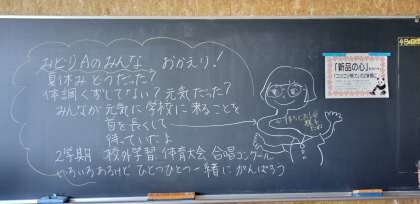 みどりAのみんな おかえり!
夏休みどうだった?
体調くずしてない?元気だった?
みんなが元気に学校に来ることを
首を長くして
待っていたよ
2学期 校外学習 体育大会 合唱コンクール
いろいろあるけど ひとつひとつ一緒にがんばろう
「新品の心」